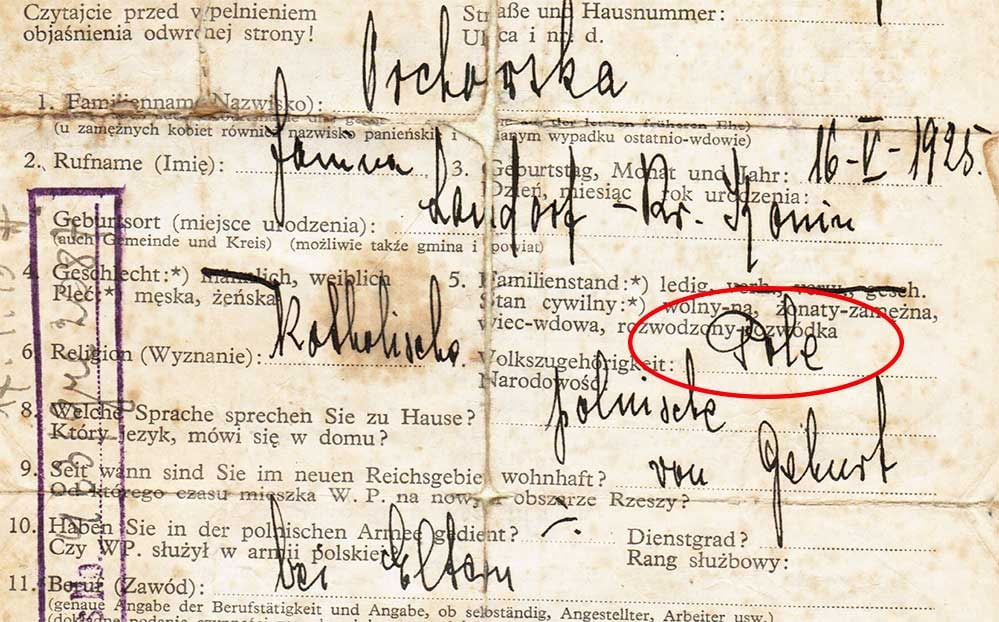 Czytajcie przed wypełnieniem
objaśnienia odwrotnej strony!
Straße und Hausnummer:
Ulica i nr. d.
1. Familienname (Nazwisko):
(u zamężnych kobiet również nazwisko panieńskie i w danym wypadku ostatnio-wdowie)
2. Rufname (Imię): Janina
3. Geburtstag, Monat und Jahr: 16-V-1925.
Dzień, miesiąc rok urodzenia:
Geburtsort (miejsce urodzenia):
(auch Gemeinde und Kreis) (możliwie także gmina i powiat)
4. Geschlecht:*) männlich, weiblich
Płeć:*) męska, żeńska
5. Familienstand:*) ledig, verh., verw., gesch.
Stan cywilny:*) wolny-na, żonaty-zamężna,
wiec-wdowa, rozwodzony-rozwódka
6. Religion (Wyznanie): Katholische
Volkszugehörigkeit: Pole
Narodowość
8. Welche Sprache sprechen Sie zu Hause? polnische
Który język, mówi się w domu?
9. Seit wann sind Sie im neuen Reichsgebiet wohnhaft? von Geburt
Od którego czasu mieszka W. P. na nowym obszarze Rzeszy?
10. Haben Sie in der polnischen Armee gedient? -.
Czy WP. służył w armii polskiej
Dienstgrad?
Rang służbowy:
11. Beruf (Zawód): bei Eltern
(genaue Angabe der Berufstätigkeit und Angabe, ob selbständig, Angestellter, Arbeiter usw.)